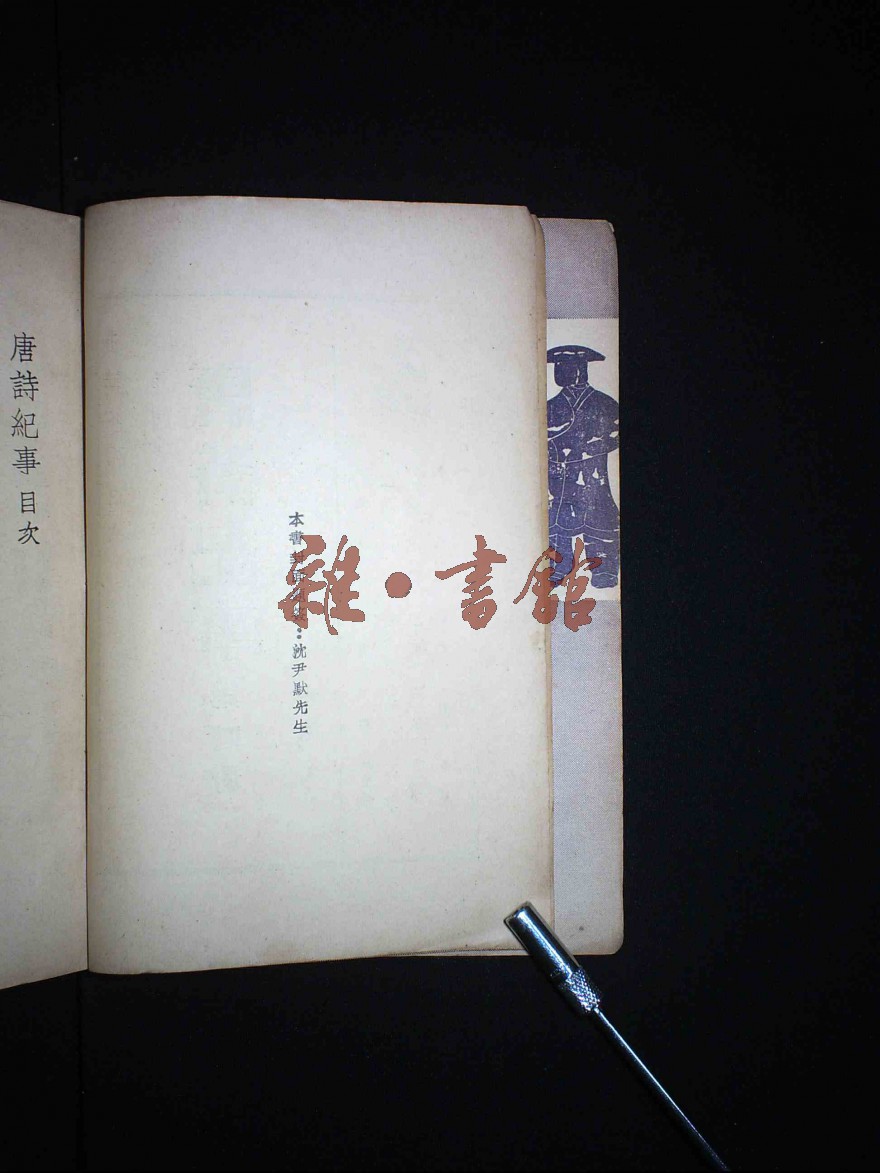 本書封面題簽：沈尹默先生
唐詩紀事 目次
雜·書館